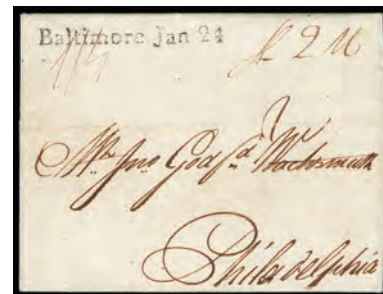 Baltimore Jan 24
2
Mr. Jno Godfd Wachsmuth
Philadelphia